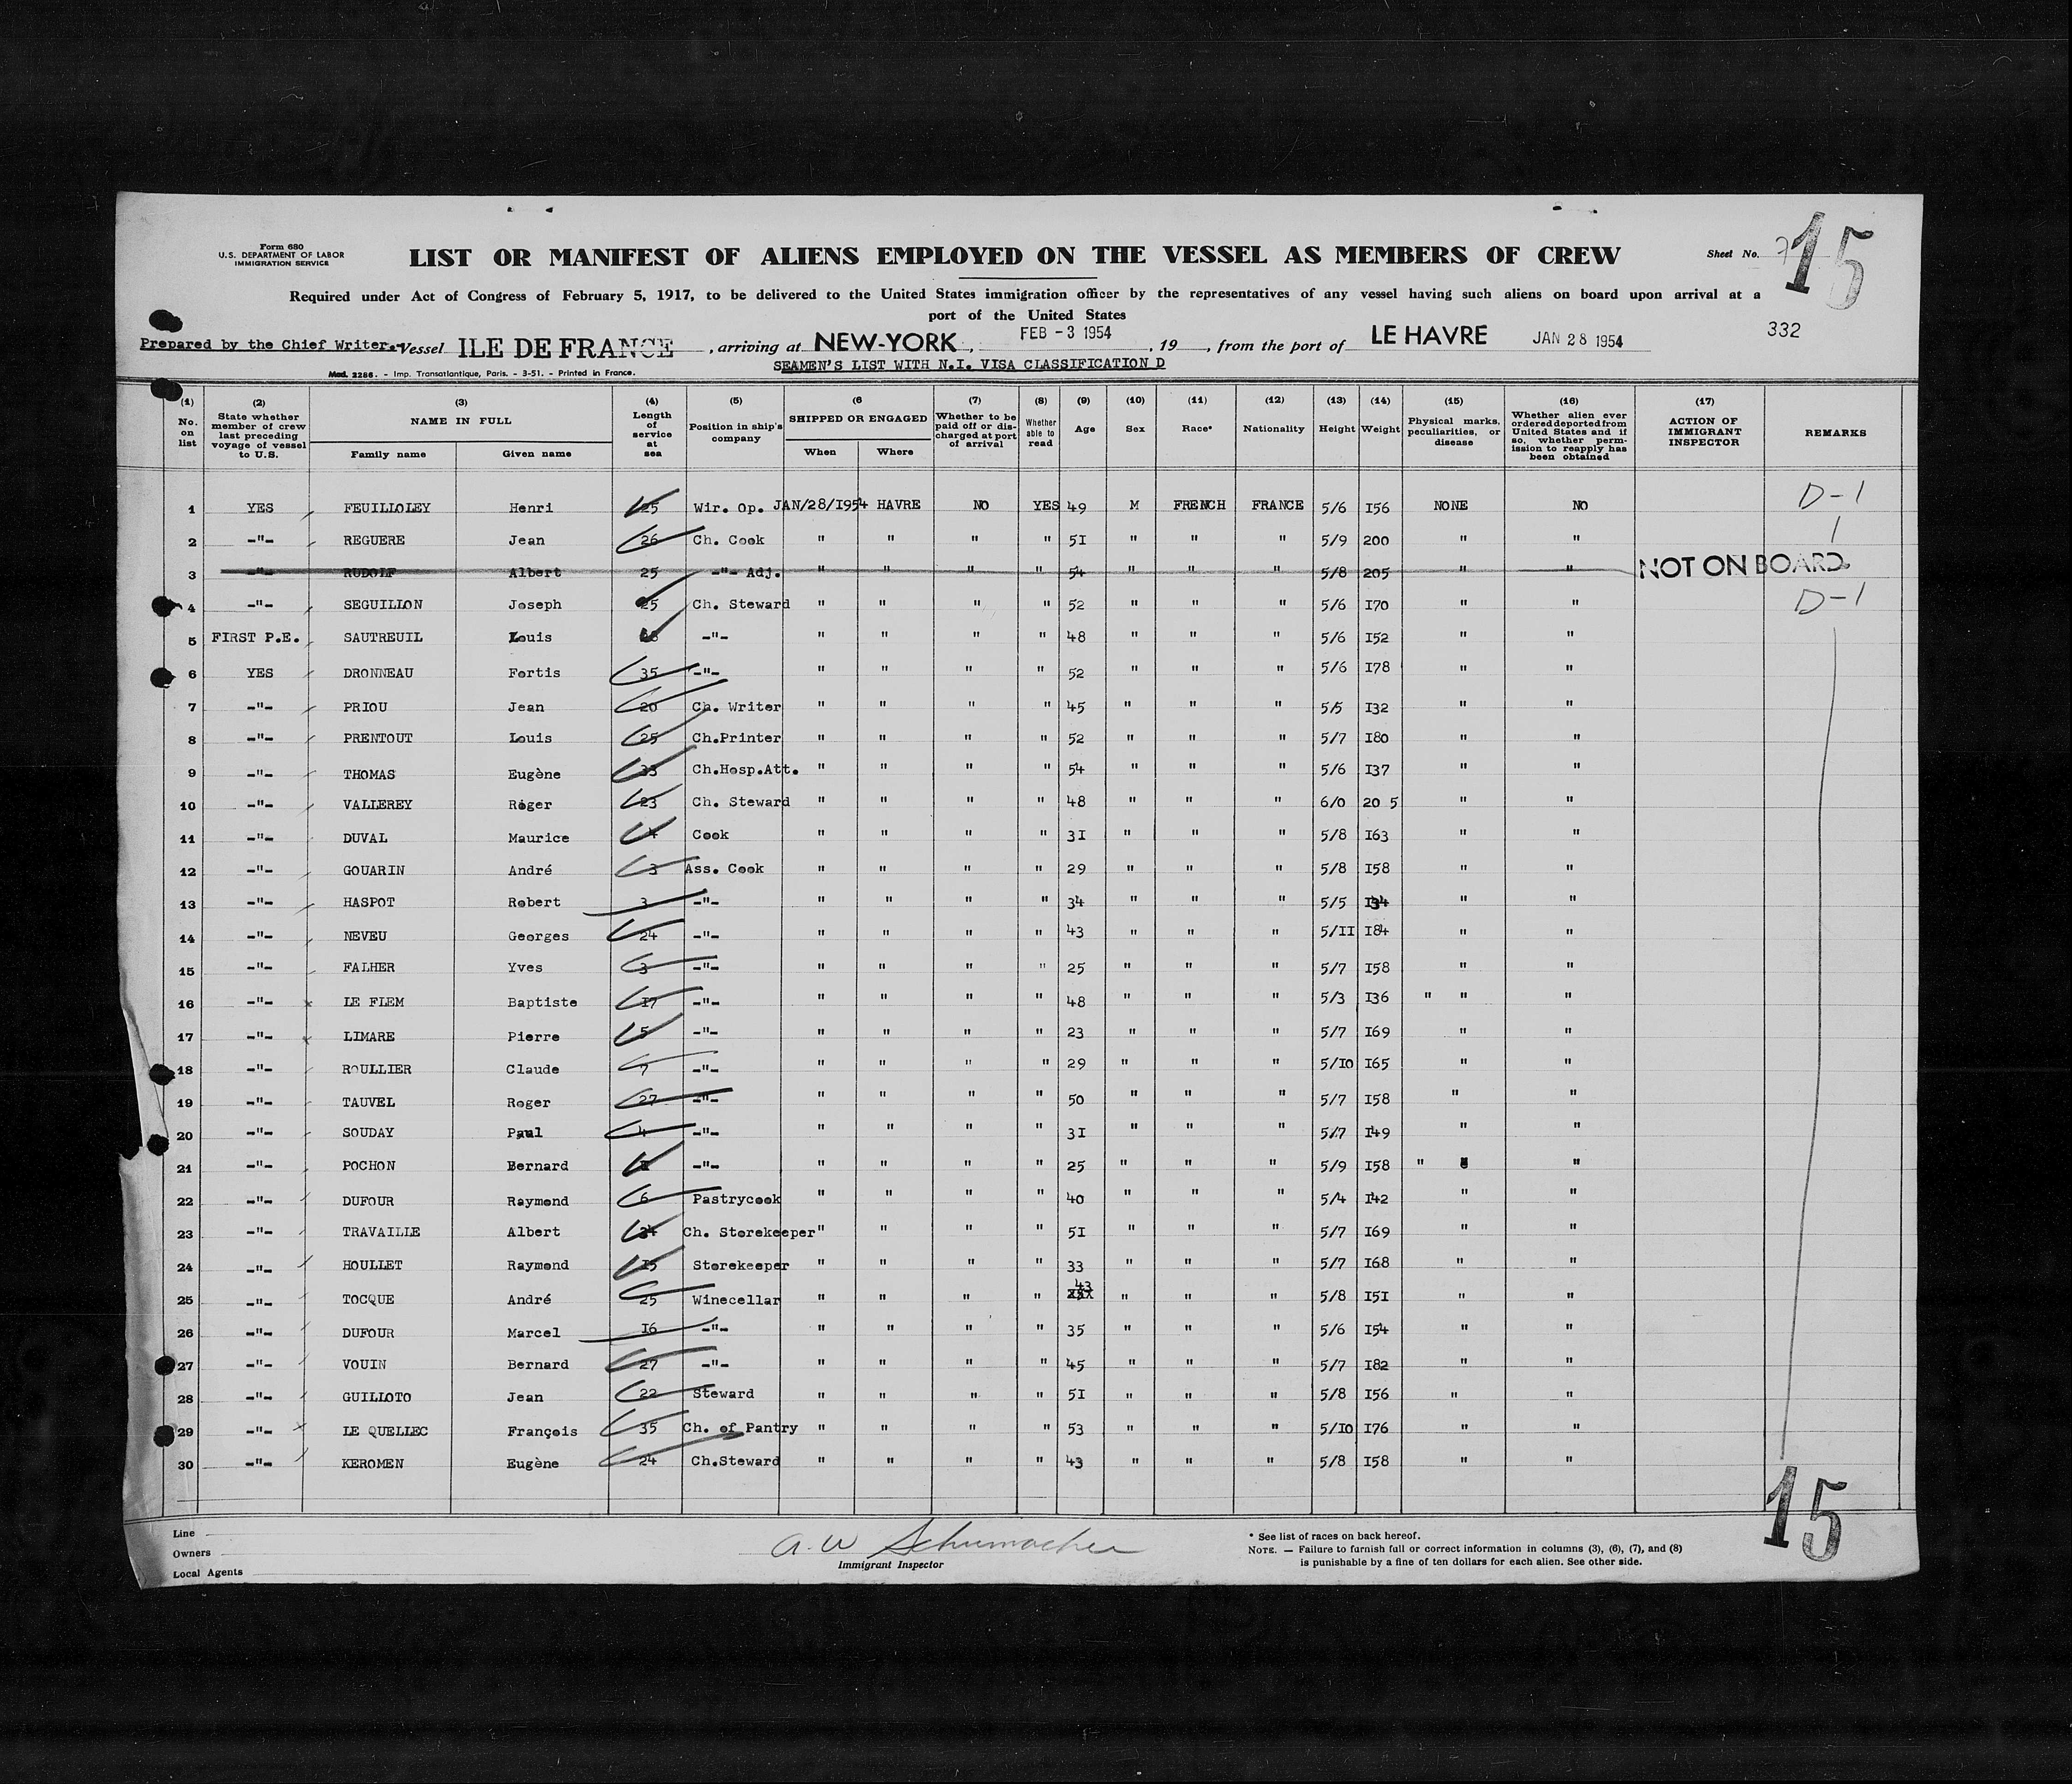 Form 680
U.S. DEPARTMENT OF LABOR
IMMIGRATION SERVICE
LIST OR MANIFEST OF ALIENS EMPLOYED ON THE VESSEL AS MEMBERS OF CREW
Sheet No. 7
15
Required under Act of Congress of February 5, 1917, to be delivered to the United States immigration officer by the representatives of any vessel having such aliens on board upon arrival at a
port of the United States
Prepared by the Chief Writer. Vessel ILE DE FRANCE, arriving at NEW-YORK, FEB -3 1954, 19 , from the port of LE HAVRE JAN 28 1954 332
Mod. 2286. - Imp. Transatlantique, Paris. - 3-51. - Printed in France.
SEAMEN'S LIST WITH N.I. VISA CLASSIFICATION D
(1) No. on list (2) State whether member of crew last preceding voyage of vessel to U.S. (3) NAME IN FULL Family name Given name (4) Length of service at sea (5) Position in ship's company (6 SHIPPED OR ENGAGED When Where (7) Whether to be paid off or discharged at port of arrival (8) Whether able to read (9) Age (10) Sex (11) Race* (12) Nationality (13) Height (14) Weight (15) Physical marks, peculiarities, or disease (16) Whether alien ever ordered deported from United States and if so, whether permission to reapply has been obtained (17) ACTION OF IMMIGRANT INSPECTOR REMARKS
1 YES FEUILLOLEY Henri 25 Wir. Op. JAN/28/1954 HAVRE NO YES 49 M FRENCH FRANCE 5/6 156 NONE NO D-1
2 -"- REGUERE Jean 26 Ch. Cook " " " " 51 " " " 5/9 200 " " 1
3 -"- RUDOLF Albert 25 -"- Adj. " " " " 54 " " " 5/8 205 " " NOT ON BOARD
4 -"- SEGUILLON Joseph 25 Ch. Steward " " " " 52 " " " 5/6 170 " " D-1
5 FIRST P.E. SAUTREUIL Louis -"- " " " " 48 " " " 5/6 152 " "
6 YES DRONNEAU Fortis 35 -"- " " " " 52 " " " 5/6 178 " "
7 -"- PRIOU Jean 20 Ch. Writer " " " " 45 " " " 5/5 132 " "
8 -"- PRENTOUT Louis 25 Ch.Printer " " " " 52 " " " 5/7 180 " "
9 -"- THOMAS Eugène 33 Ch.Hosp.Att. " " " " 54 " " " 5/6 137 " "
10 -"- VALLEREY Roger 23 Ch. Steward " " " " 48 " " " 6/0 20 5 " "
11 -"- DUVAL Maurice 4 Cook " " " " 31 " " " 5/8 163 " "
12 -"- GOUARIN André 3 Ass. Cook " " " " 29 " " " 5/8 158 " "
13 -"- HASPOT Robert 3 -"- " " " " 34 " " " 5/5 134 " "
14 -"- NEVEU Georges 24 -"- " " " " 43 " " " 5/11 184 " "
15 -"- FALHER Yves 3 -"- " " " " 25 " " " 5/7 158 " "
16 -"- LE FLEM Baptiste 17 -"- " " " " 48 " " " 5/3 136 " " "
17 -"- LIMARE Pierre 5 -"- " " " " 23 " " " 5/7 169 " "
18 -"- ROULLIER Claude 7 -"- " " " " 29 " " " 5/10 165 " "
19 -"- TAUVEL Roger 27 -"- " " " " 50 " " " 5/7 158 " "
20 -"- SOUDAY Paul 4 -"- " " " " 31 " " " 5/7 149 " "
21 -"- POCHON Bernard -"- " " " " 25 " " " 5/9 158 " "
22 -"- DUFOUR Raymond 6 Pastrycook " " " " 40 " " " 5/4 142 " "
23 -"- TRAVAILLE Albert 34 Ch. Storekeeper " " " " 51 " " " 5/7 169 " "
24 -"- HOULLET Raymond 15 Storekeeper " " " " 33 " " " 5/7 168 " "
25 -"- TOCQUE André 25 Winecellar " " " " 43 " " " 5/8 151 " "
26 -"- DUFOUR Marcel 16 -"- " " " " 35 " " " 5/6 154 " "
27 -"- VOUIN Bernard 27 -"- " " " " 45 " " " 5/7 182 " "
28 -"- GUILLOTO Jean 22 Steward " " " " 51 " " " 5/8 156 " "
29 -"- LE QUELLEC François 35 Ch. of Pantry " " " " 53 " " " 5/10 176 " "
30 -"- KEROMEN Eugène 24 Ch.Steward " " " " 43 " " " 5/8 158 " "
15
Line
Owners
Local Agents
A. W Schumacher
Immigrant Inspector
* See list of races on back hereof.
NOTE. — Failure to furnish full or correct information in columns (3), (6), (7), and (8)
is punishable by a fine of ten dollars for each alien. See other side.